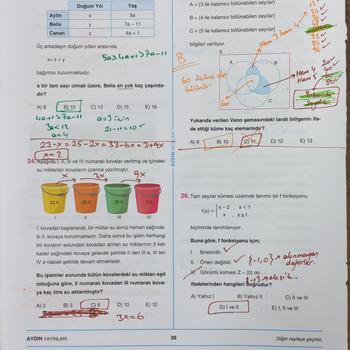 Doğum Yılı Yaş
Aylin x 5a
Belis y 7a – 11
Canan z 4a + 1
Üç arkadaşın doğum yılları arasında
x < z < y
bağıntısı bulunmaktadır.
5a > 4a+1 > 7a-11
a bir tam sayı olmak üzere, Belis en çok kaç yaşındadır?
A) 8 B) 10 C) 13 D) 15 E) 16
4a+1 > 7a-11
3a < 12
a < 4
a=3 için
21-11=10
23-x = 25-2x = 33-6x = 3+9x
x=2
24. Aşağıda I, II, III ve IV numaralı kovalar verilmiş ve içindeki
su miktarları kovaların üzerine yazılmıştır.
x 3x 9x
I II III IV
I. kovadan başlanarak, bir miktar su alınıp hemen sağında-
ki II. kovaya konulmaktadır. Daha sonra bu işlem herhangi
bir kovanın solundaki kovadan alınan su miktarının 3 katı
kadar sağındaki kovaya gelecek şekilde II den III e, III ten
IV e olacak şekilde devam etmektedir.
Bu işlemler sonunda bütün kovalardaki su miktarı eşit
olduğuna göre, II numaralı kovadan III numaralı kova-
ya kaç litre su aktarılmıştır?
A) 2 B) 3 C) 6 D) 10 E) 12
3x=6
AYDIN YAYINLARI
26
A = {3 ile kalansız bölünebilen sayılar}
B = {4 ile kalansız bölünebilen sayılar}
C = {5 ile kalansız bölünebilen sayılar}
bilgileri veriliyor.
A B
C
Yukarıda verilen Venn şemasındaki taralı bölgenin ifa-
de ettiği küme kaç elemanlıdır?
A) 9 B) 10 C) 11 D) 12 E) 13
26. Tam sayılar kümesi üzerinde tanımlı bir f fonksiyonu
f(x) = { x – 2 , x < 1
x , x ≥ 1
biçiminde tanımlanıyor.
Buna göre, f fonksiyonu için;
I. Birebirdir.
II. Örten değildir.
III. Görüntü kümesi Z – {0} dır.
ifadelerinden hangileri doğrudur?
A) Yalnız I B) Yalnız II C) II ve III
D) I ve II E) I, II ve III
Diğer sayfaya geçiniz.